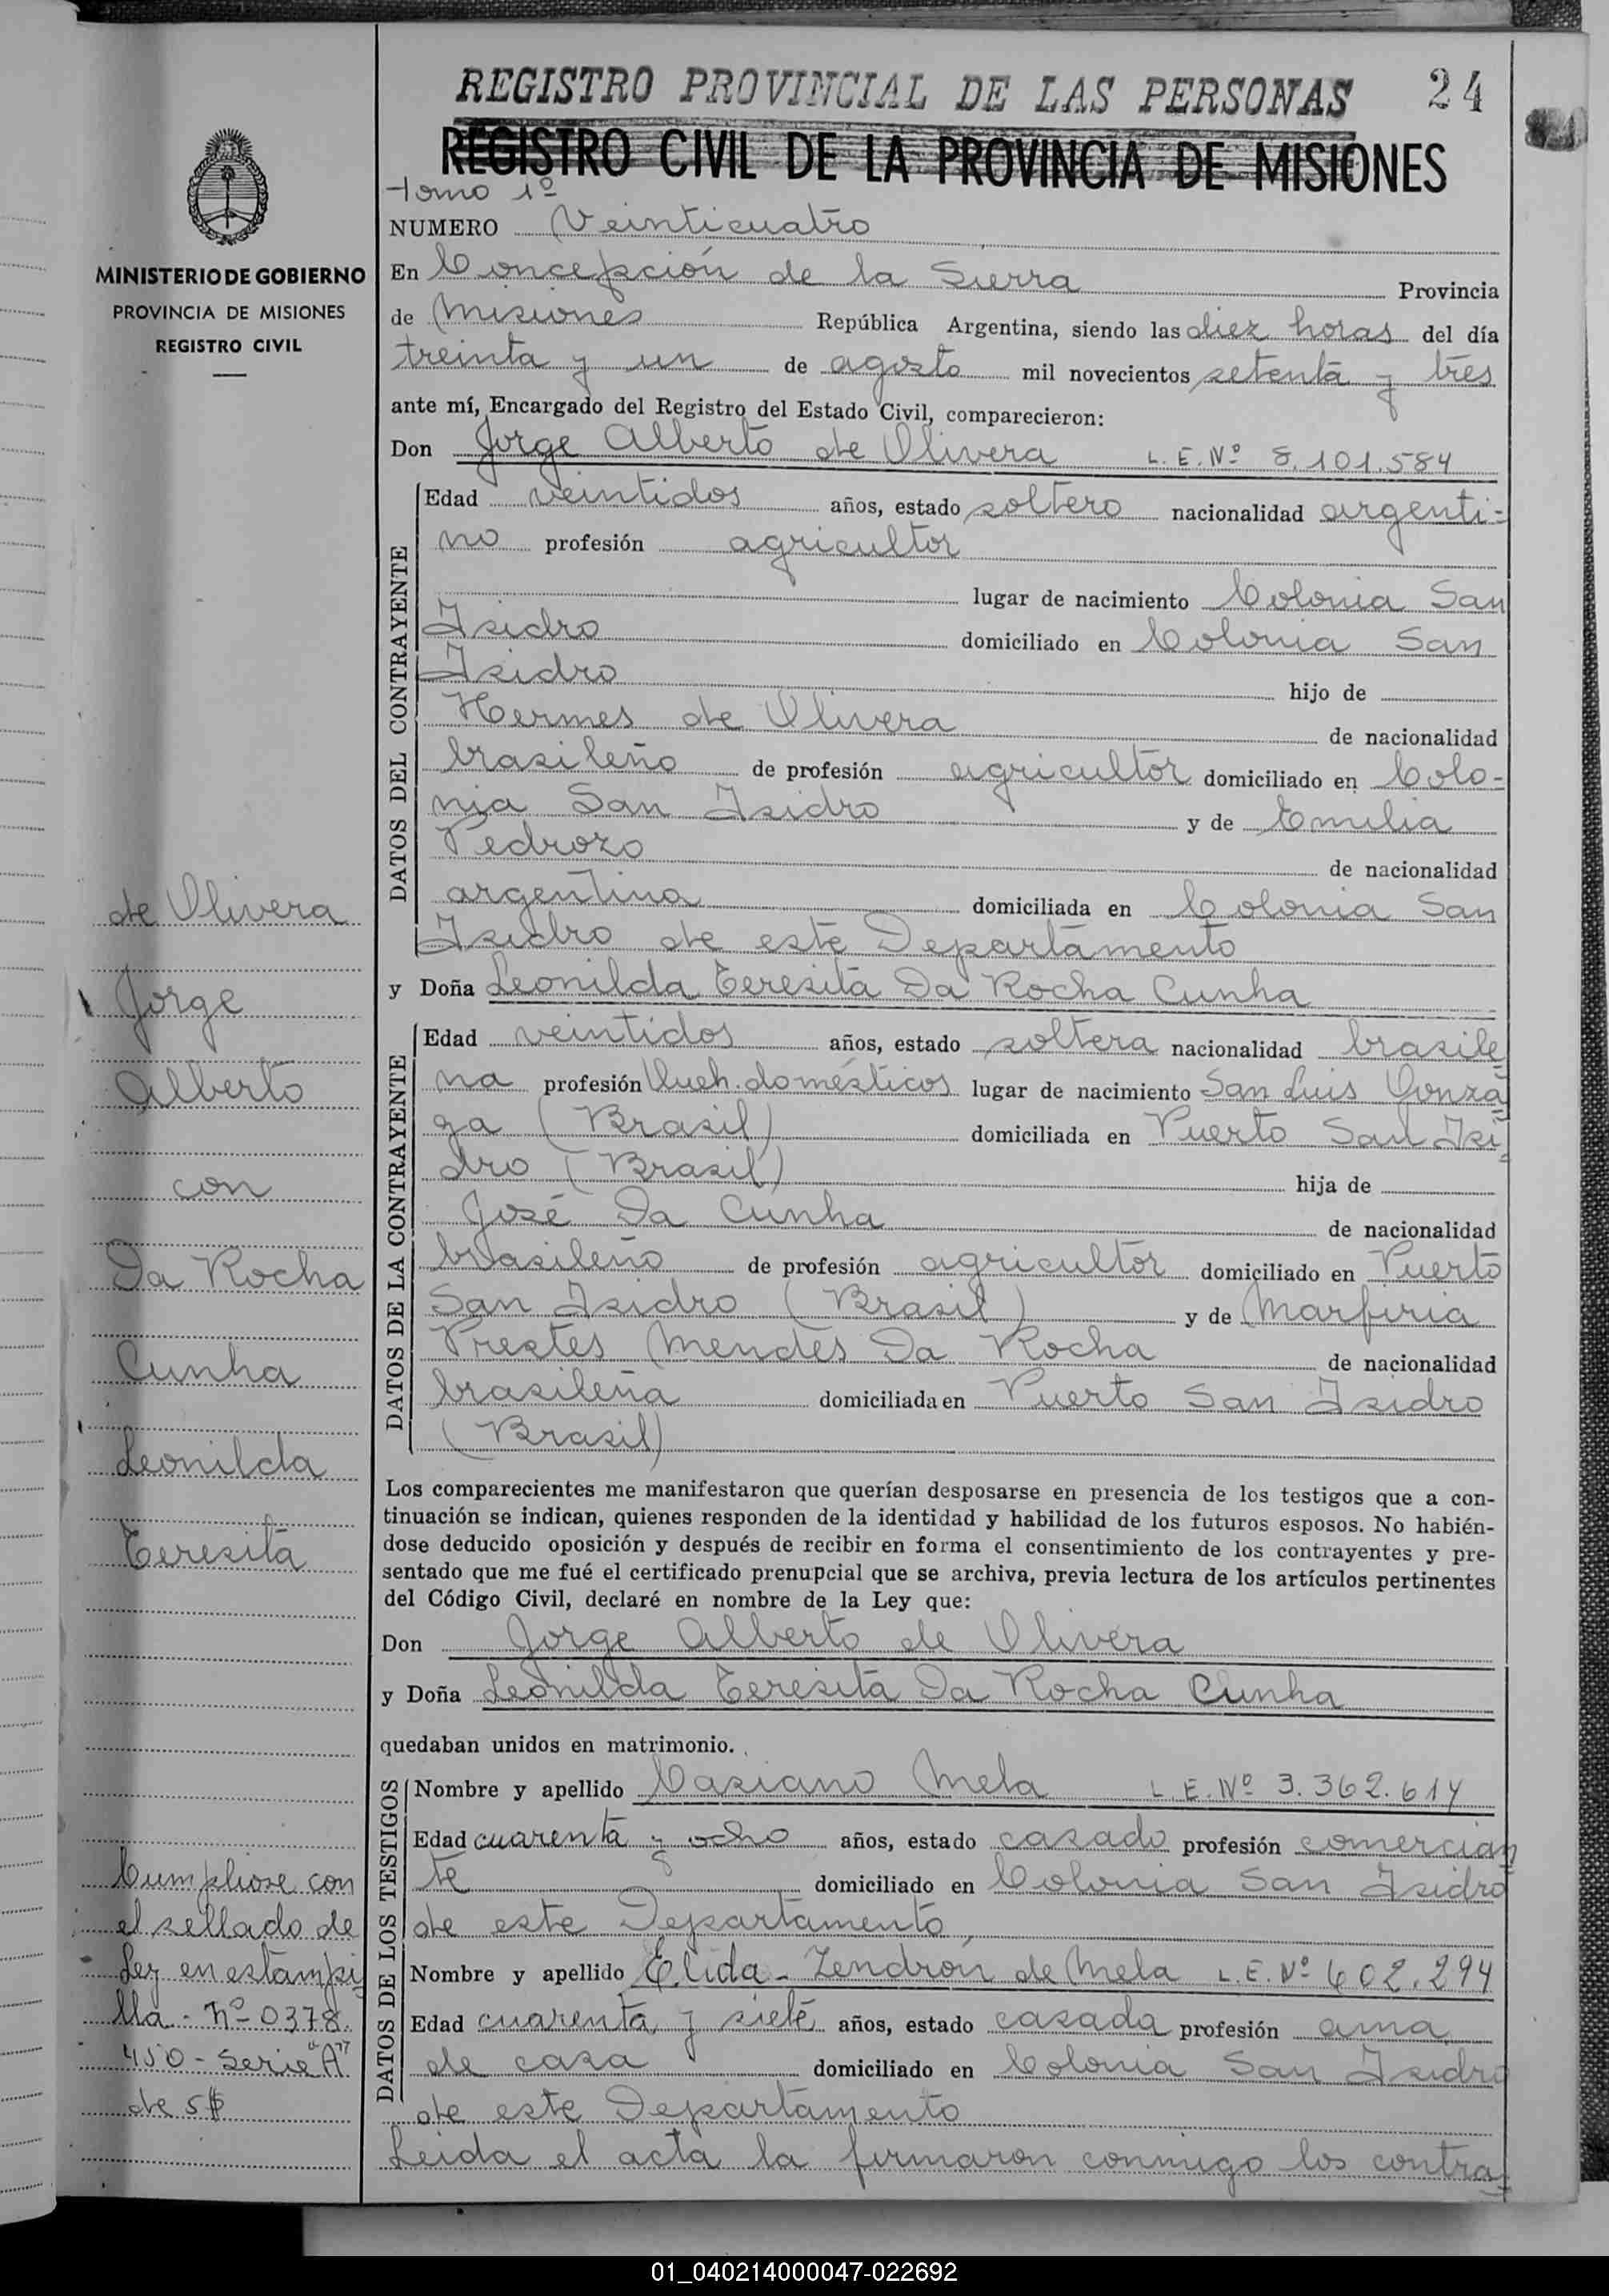 REGISTRO PROVINCIAL DE LAS PERSONAS 24
REGISTRO CIVIL DE LA PROVINCIA DE MISIONES
MINISTERIO DE GOBIERNO
PROVINCIA DE MISIONES
REGISTRO CIVIL
Tomo 1º
NUMERO Veinticuatro
En Concepción de la Sierra Provincia
de Misiones República Argentina, siendo las diez horas del día
treinta y un de agosto mil novecientos setenta y tres
ante mí, Encargado del Registro del Estado Civil, comparecieron:
Don Jorge Alberto de Olivera L. E. Nº 8.101.584
DATOS DEL CONTRAYENTE
Edad veintidos años, estado soltero nacionalidad argenti-
no profesión agricultor
lugar de nacimiento Colonia San
Isidro domiciliado en Colonia San
Isidro hijo de
Hermes de Olivera de nacionalidad
brasileño de profesión agricultor domiciliado en Colo-
nia San Isidro y de Emilia
Pedrozo de nacionalidad
argentina domiciliada en Colonia San
Isidro de este Departamento
y Doña Leonilda Teresita Da Rocha Cunha
DATOS DE LA CONTRAYENTE
Edad veintidos años, estado soltera nacionalidad brasile
na profesión Queh. domésticos lugar de nacimiento San Luis Gonza
ga (Brasil) domiciliada en Puerto San Isi
dro (Brasil) hija de
José Da Cunha de nacionalidad
brasileño de profesión agricultor domiciliado en Puerto
San Isidro (Brasil) y de Marfiria
Prestes Mendes Da Rocha de nacionalidad
brasileña domiciliada en Puerto San Isidro
(Brasil)
Los comparecientes me manifestaron que querían desposarse en presencia de los testigos que a con-
tinuación se indican, quienes responden de la identidad y habilidad de los futuros esposos. No habién-
dose deducido oposición y después de recibir en forma el consentimiento de los contrayentes y pre-
sentado que me fué el certificado prenupcial que se archiva, previa lectura de los artículos pertinentes
del Código Civil, declaré en nombre de la Ley que:
Don Jorge Alberto de Olivera
y Doña Leonilda Teresita Da Rocha Cunha
quedaban unidos en matrimonio.
DATOS DE LOS TESTIGOS
Nombre y apellido Casiano Mela L. E. Nº 3.362.614
Edad cuarenta y ocho años, estado casado profesión comercian
te domiciliado en Colonia San Isidro
de este Departamento
Nombre y apellido Elida - Zendrón de Mela L. E. Nº 602.294
Edad cuarenta y siete años, estado casada profesión ama
de casa domiciliado en Colonia San Isidro
de este Departamento
Leida el acta la firmaron conmigo los contra
de Olivera
Jorge
Alberto
con
Da Rocha
Cunha
Leonilda
Teresita
Cumpliose con
el sellado de
Ley en estampi
lla - Nº 0378.
450 - Serie "A"
de 5$
01_040214000047-022692